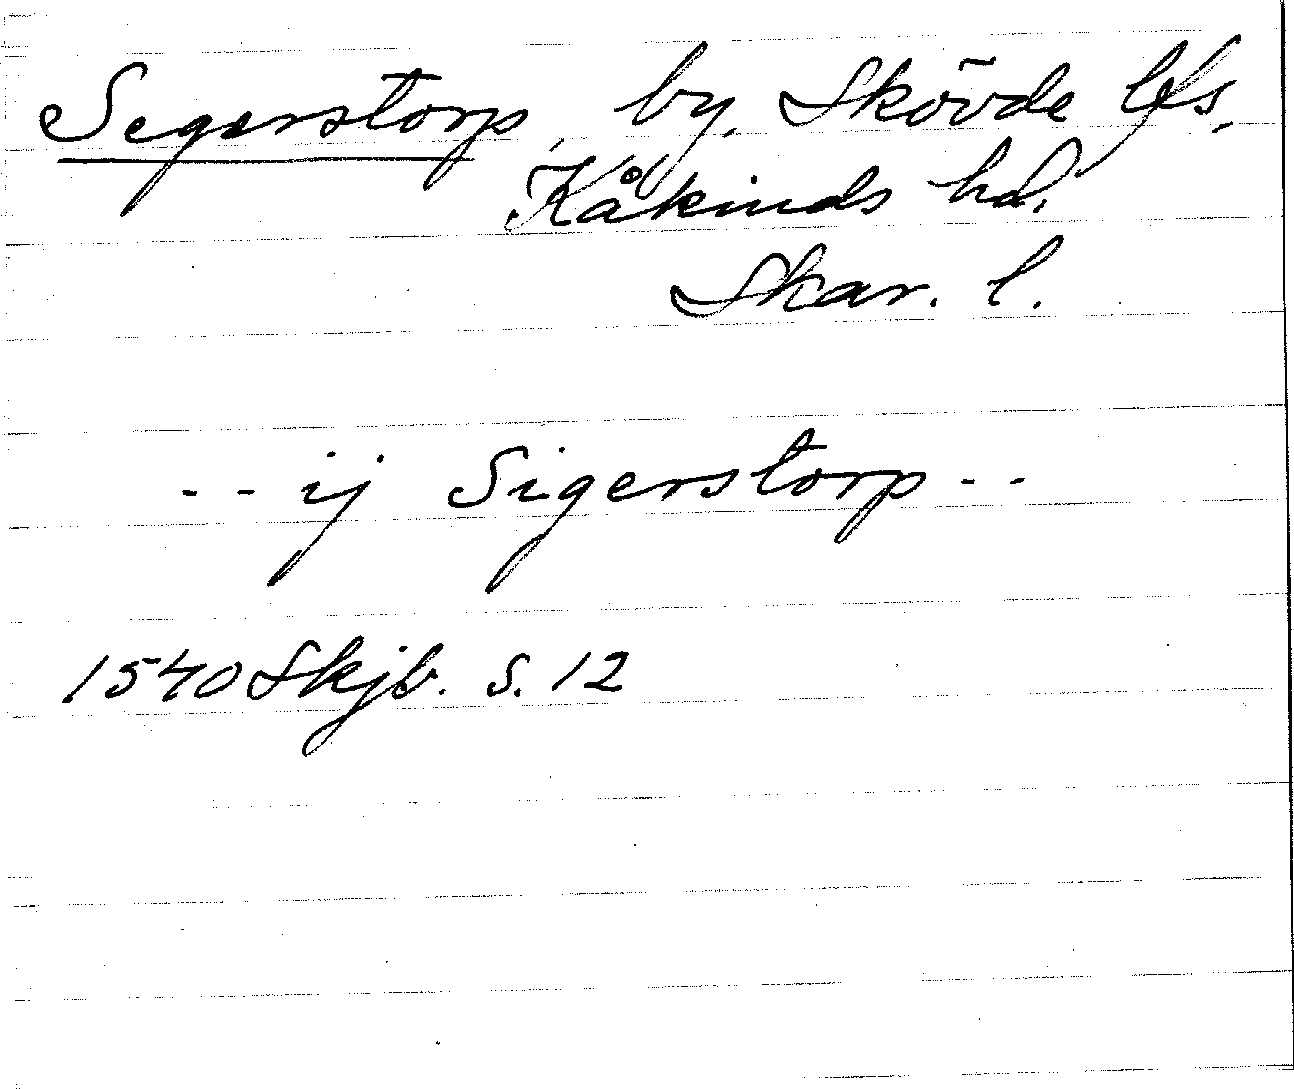 Segerstorp, by, Skövde lfs,
Kåkinds hd.
Skar. l.
-- ij Sigerstorp --
1540 Skjb. S. 12